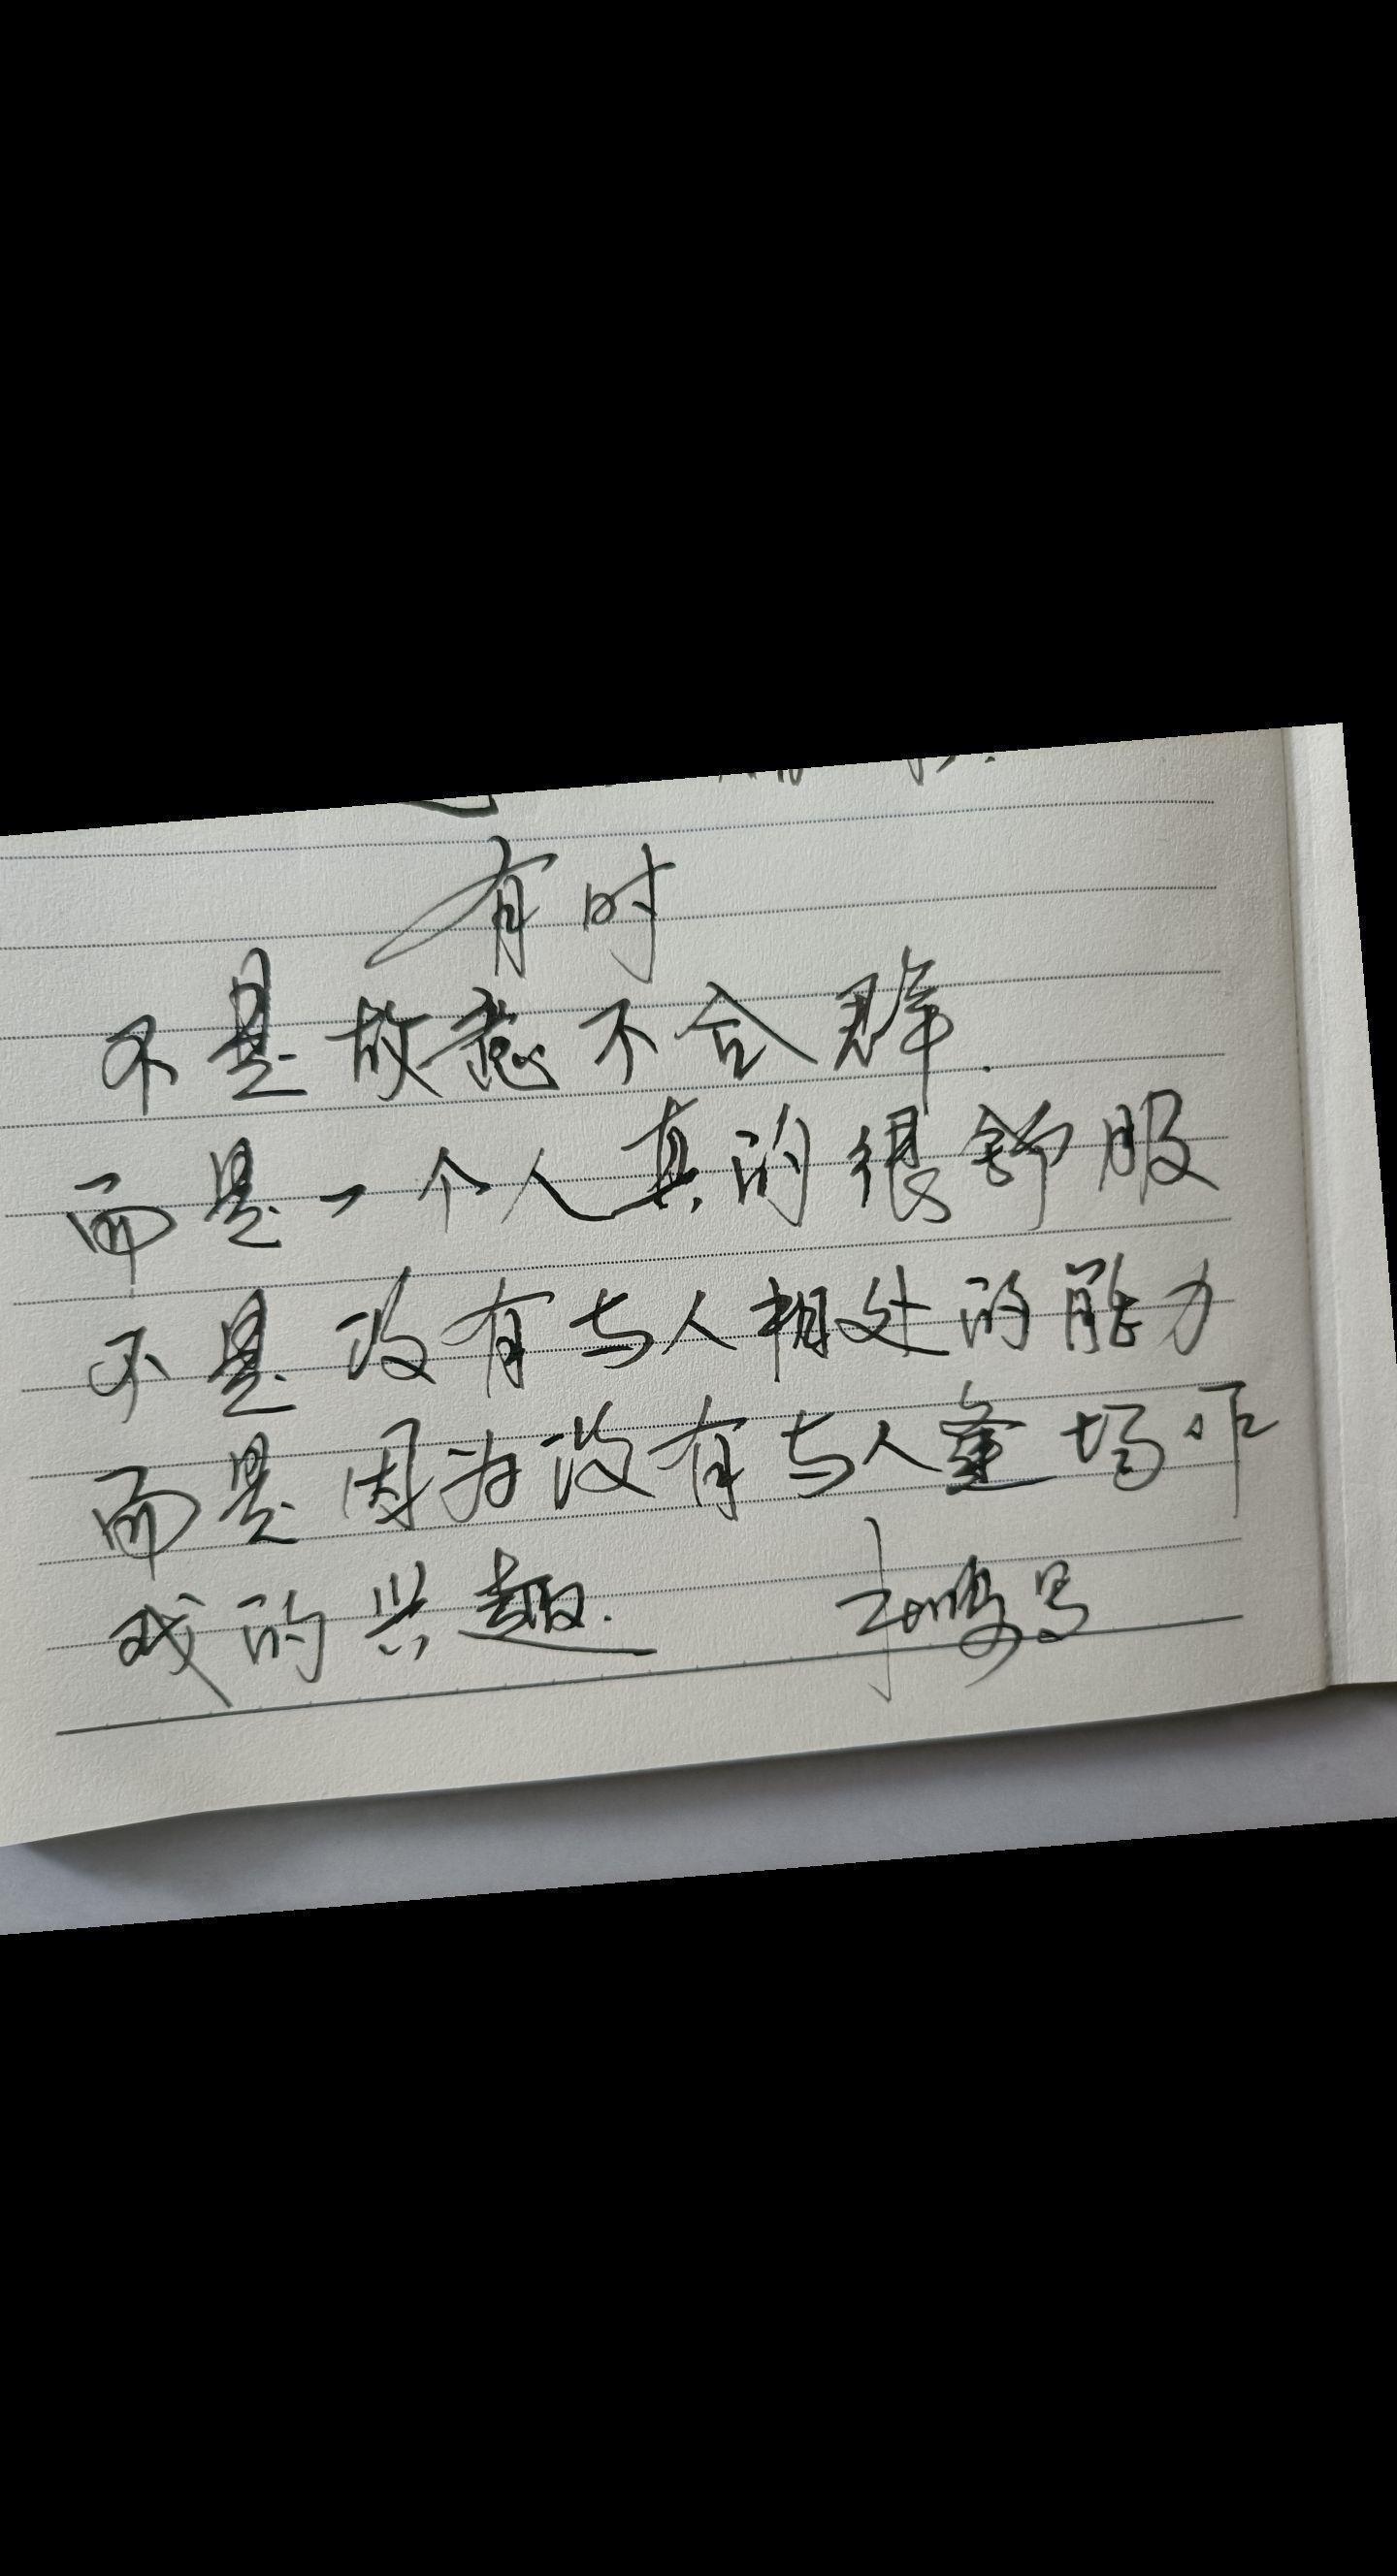 有时
不是故意不合群.
而是一个人真的很舒服
不是没有与人相处的能力
而是因为没有与人逢场作
戏的兴趣.